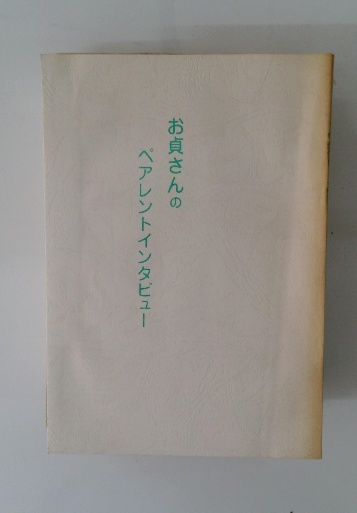 お貞さんの
ペアレントインタビュー